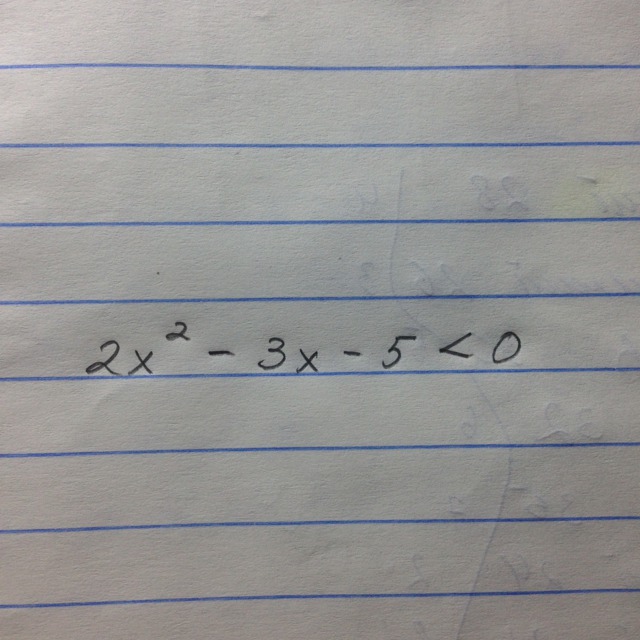 2x² - 3x - 5 < 0